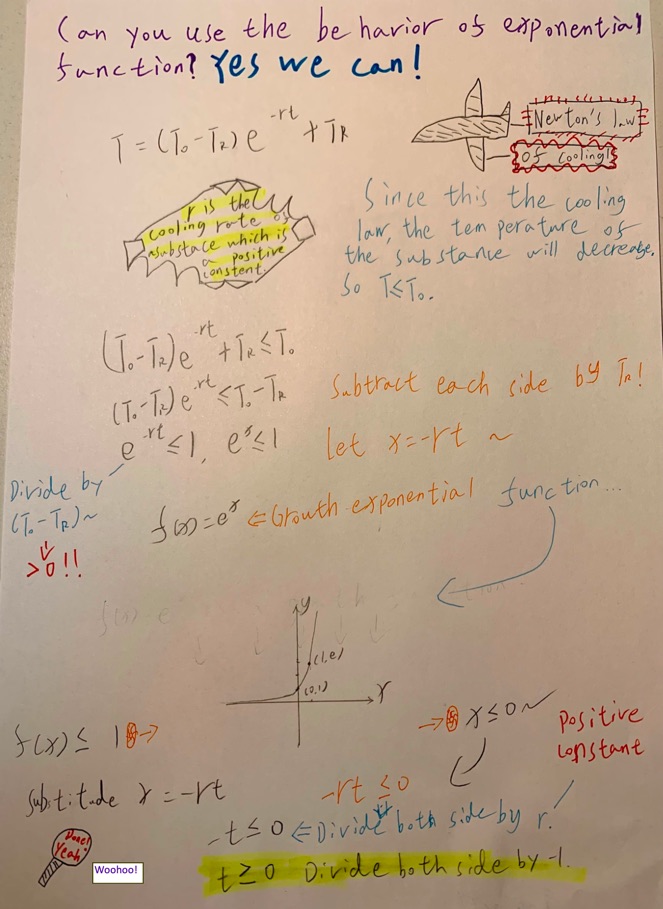 Can you use the behavior of exponential
function? Yes we can!
T = (T₀-T_R) e^-rt + T_R
Newton's law
Of cooling!
r is the
cooling rate of
a substace which is
a positive
constent.
Since this the cooling
law, the temperature of
the substance will decrease.
So T≤T₀.
(T₀-T_R)e^-rt + T_R ≤ T₀
(T₀-T_R)e^-rt ≤ T₀-T_R
Subtract each side by T_R!
e^-rt ≤ 1, e^x ≤ 1
let x=-rt ~
Divide by
(T₀-T_R)~
>0!!
f(x)=e^x ⇐ Growth exponential function...
y
(1,e)
(0,1)
x
f(x) ≤ 1 →
→ x ≤ 0 ~
Positive
constant
Substitude x = -rt
-rt ≤ 0
-t ≤ 0 ⇐ Divide both side by r.
t ≥ 0 Divide both side by -1.
Done!
Yeah!
Woohoo!